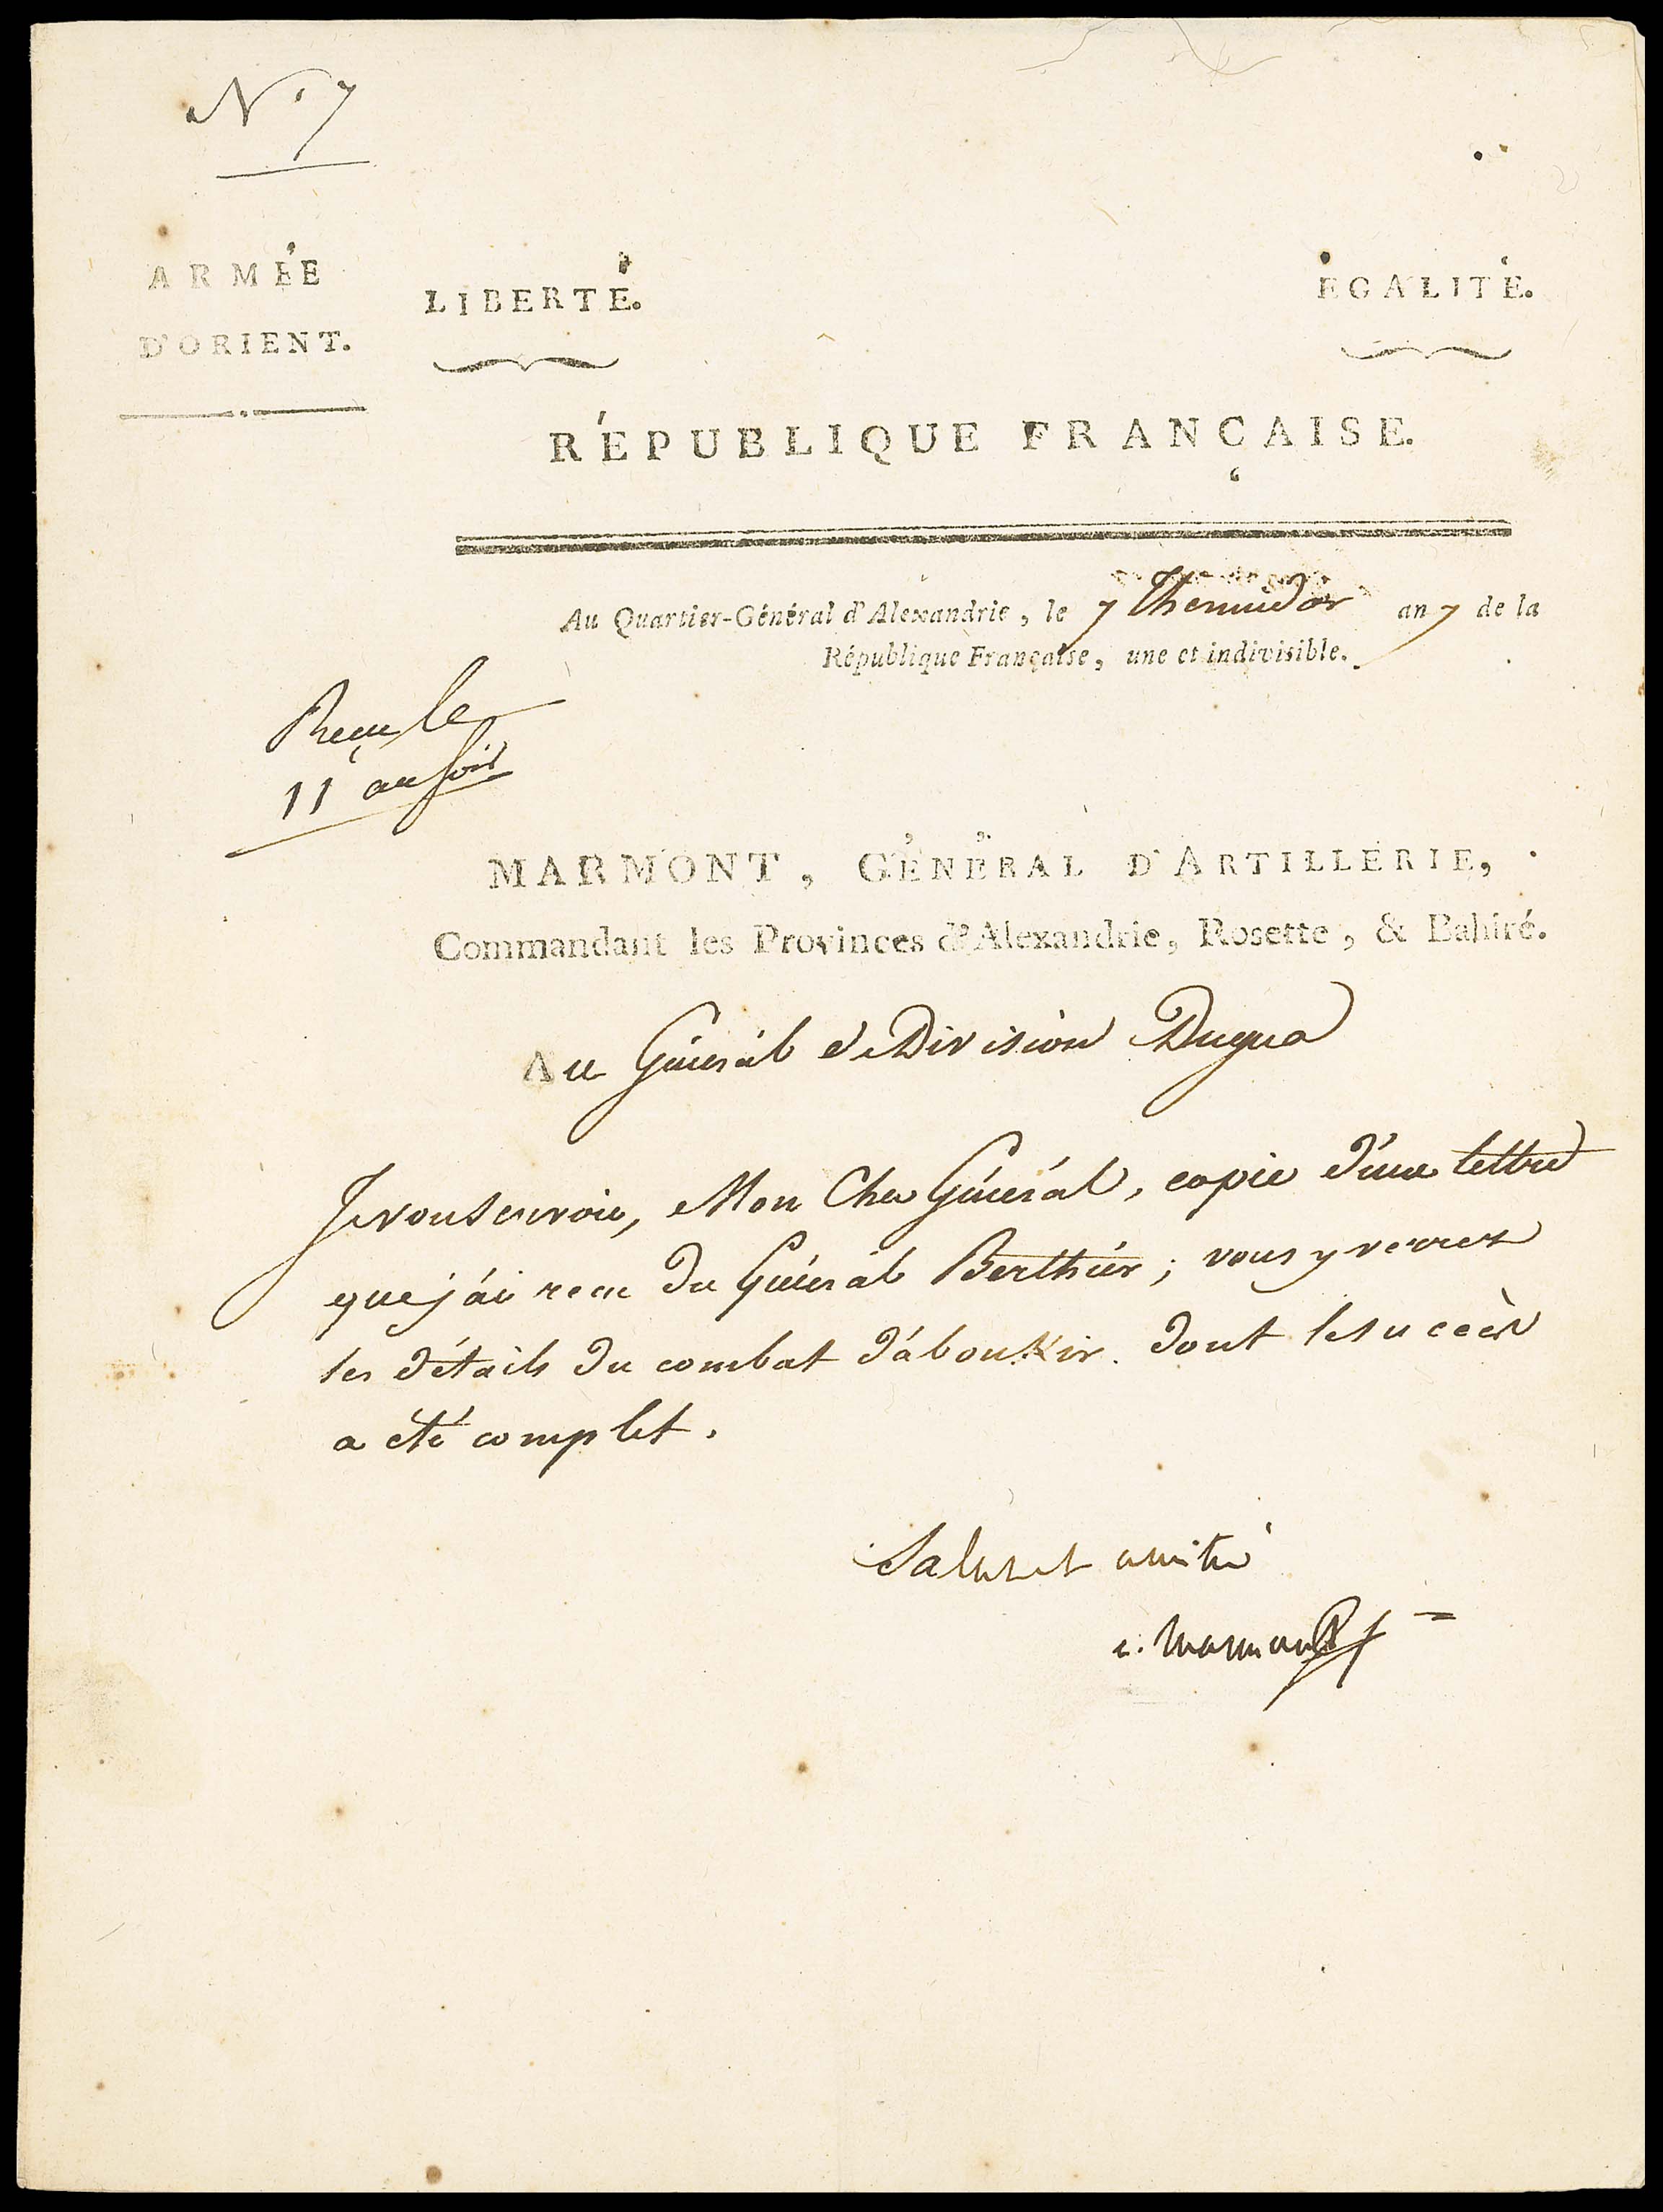 N° 7
ARMÉE
D'ORIENT.
LIBERTÉ.
ÉGALITÉ.
RÉPUBLIQUE FRANÇAISE.
Au Quartier-Général d'Alexandrie, le 7 Thermidor an 7 de la
République Française, une et indivisible.
Reçu le
11 au soir
MARMONT, GÉNÉRAL D'ARTILLERIE,
Commandant les Provinces d'Alexandrie, Rosette, & Bahiré.
Au Général de Division Dugua
Je vous envoie, Mon Cher Général, copie d'une lettre
que j'ai recue du Général Berthier; vous y verrez
les détails du combat d'aboukir. dont le succès
a été complet.
Salut et amitié
a. Marmont